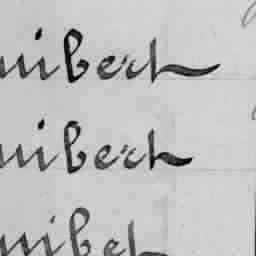 uibert
uibert
uibet